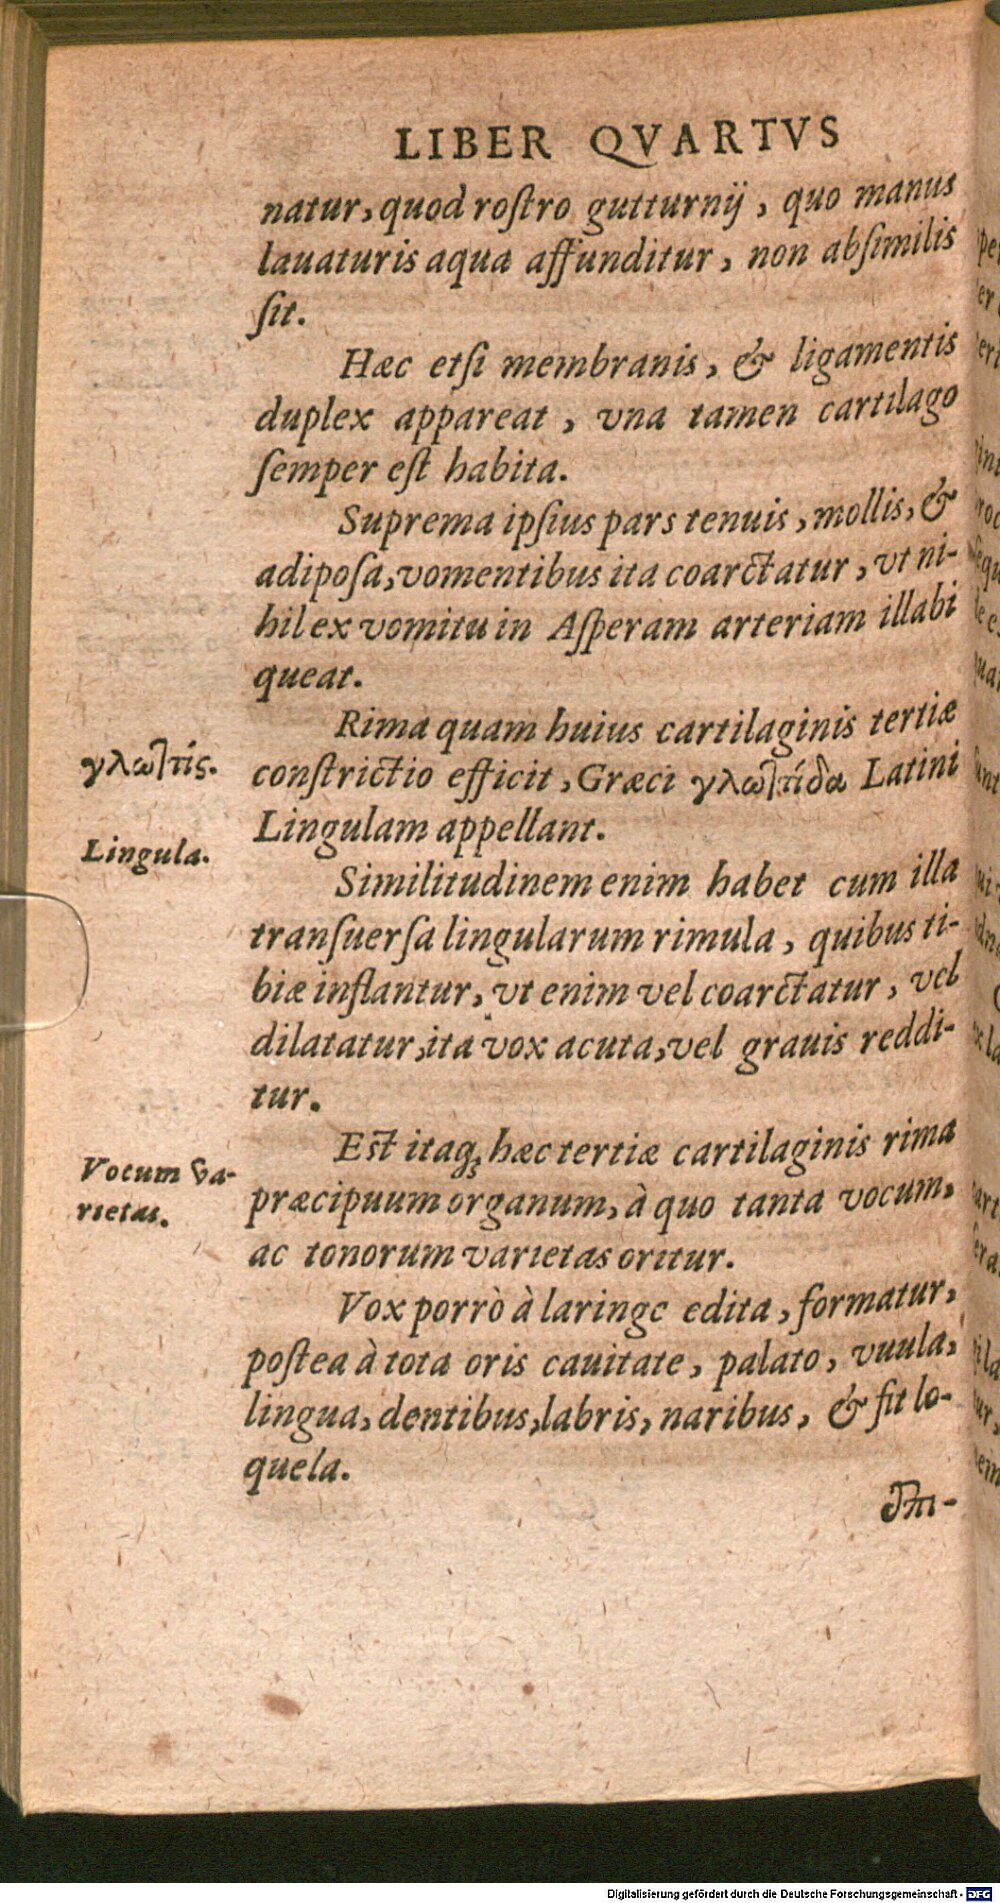 LIBER QVARTVS
natur, quod roſtro gutturnij, quo manus
lauaturis aqua affunditur, non abſimilis
ſit.
Hæc etſi membranis, & ligamentis
duplex appareat, vna tamen cartilago
ſemper eſt habita.
Suprema ipſius pars tenuis, mollis, &
adipoſa, vomentibus ita coarctatur, vt ni-
hil ex vomitu in Aſperam arteriam illabi
queat.
Rima quam huius cartilaginis tertiæ
γλωττίς.
conſtrictio efficit, Græci γλωττίδα Latini
Lingulam appellant.
Lingula.
Similitudinem enim habet cum illa
tranſuerſa lingularum rimula, quibus ti-
biæ inflantur, vt enim vel coarctatur, vel
dilatatur, ita vox acuta, vel grauis reddi-
tur.
Eſt itaq; hæc tertiæ cartilaginis rima
Vocum va-
rietas.
præcipuum organum, à quo tanta vocum,
ac tonorum varietas oritur.
Vox porrò à laringe edita, formatur,
poſtea à tota oris cauitate, palato, vuula,
lingua, dentibus, labris, naribus, & fit lo-
quela.
Digitalisierung gefördert durch die Deutsche Forschungsgemeinschaft - DFG